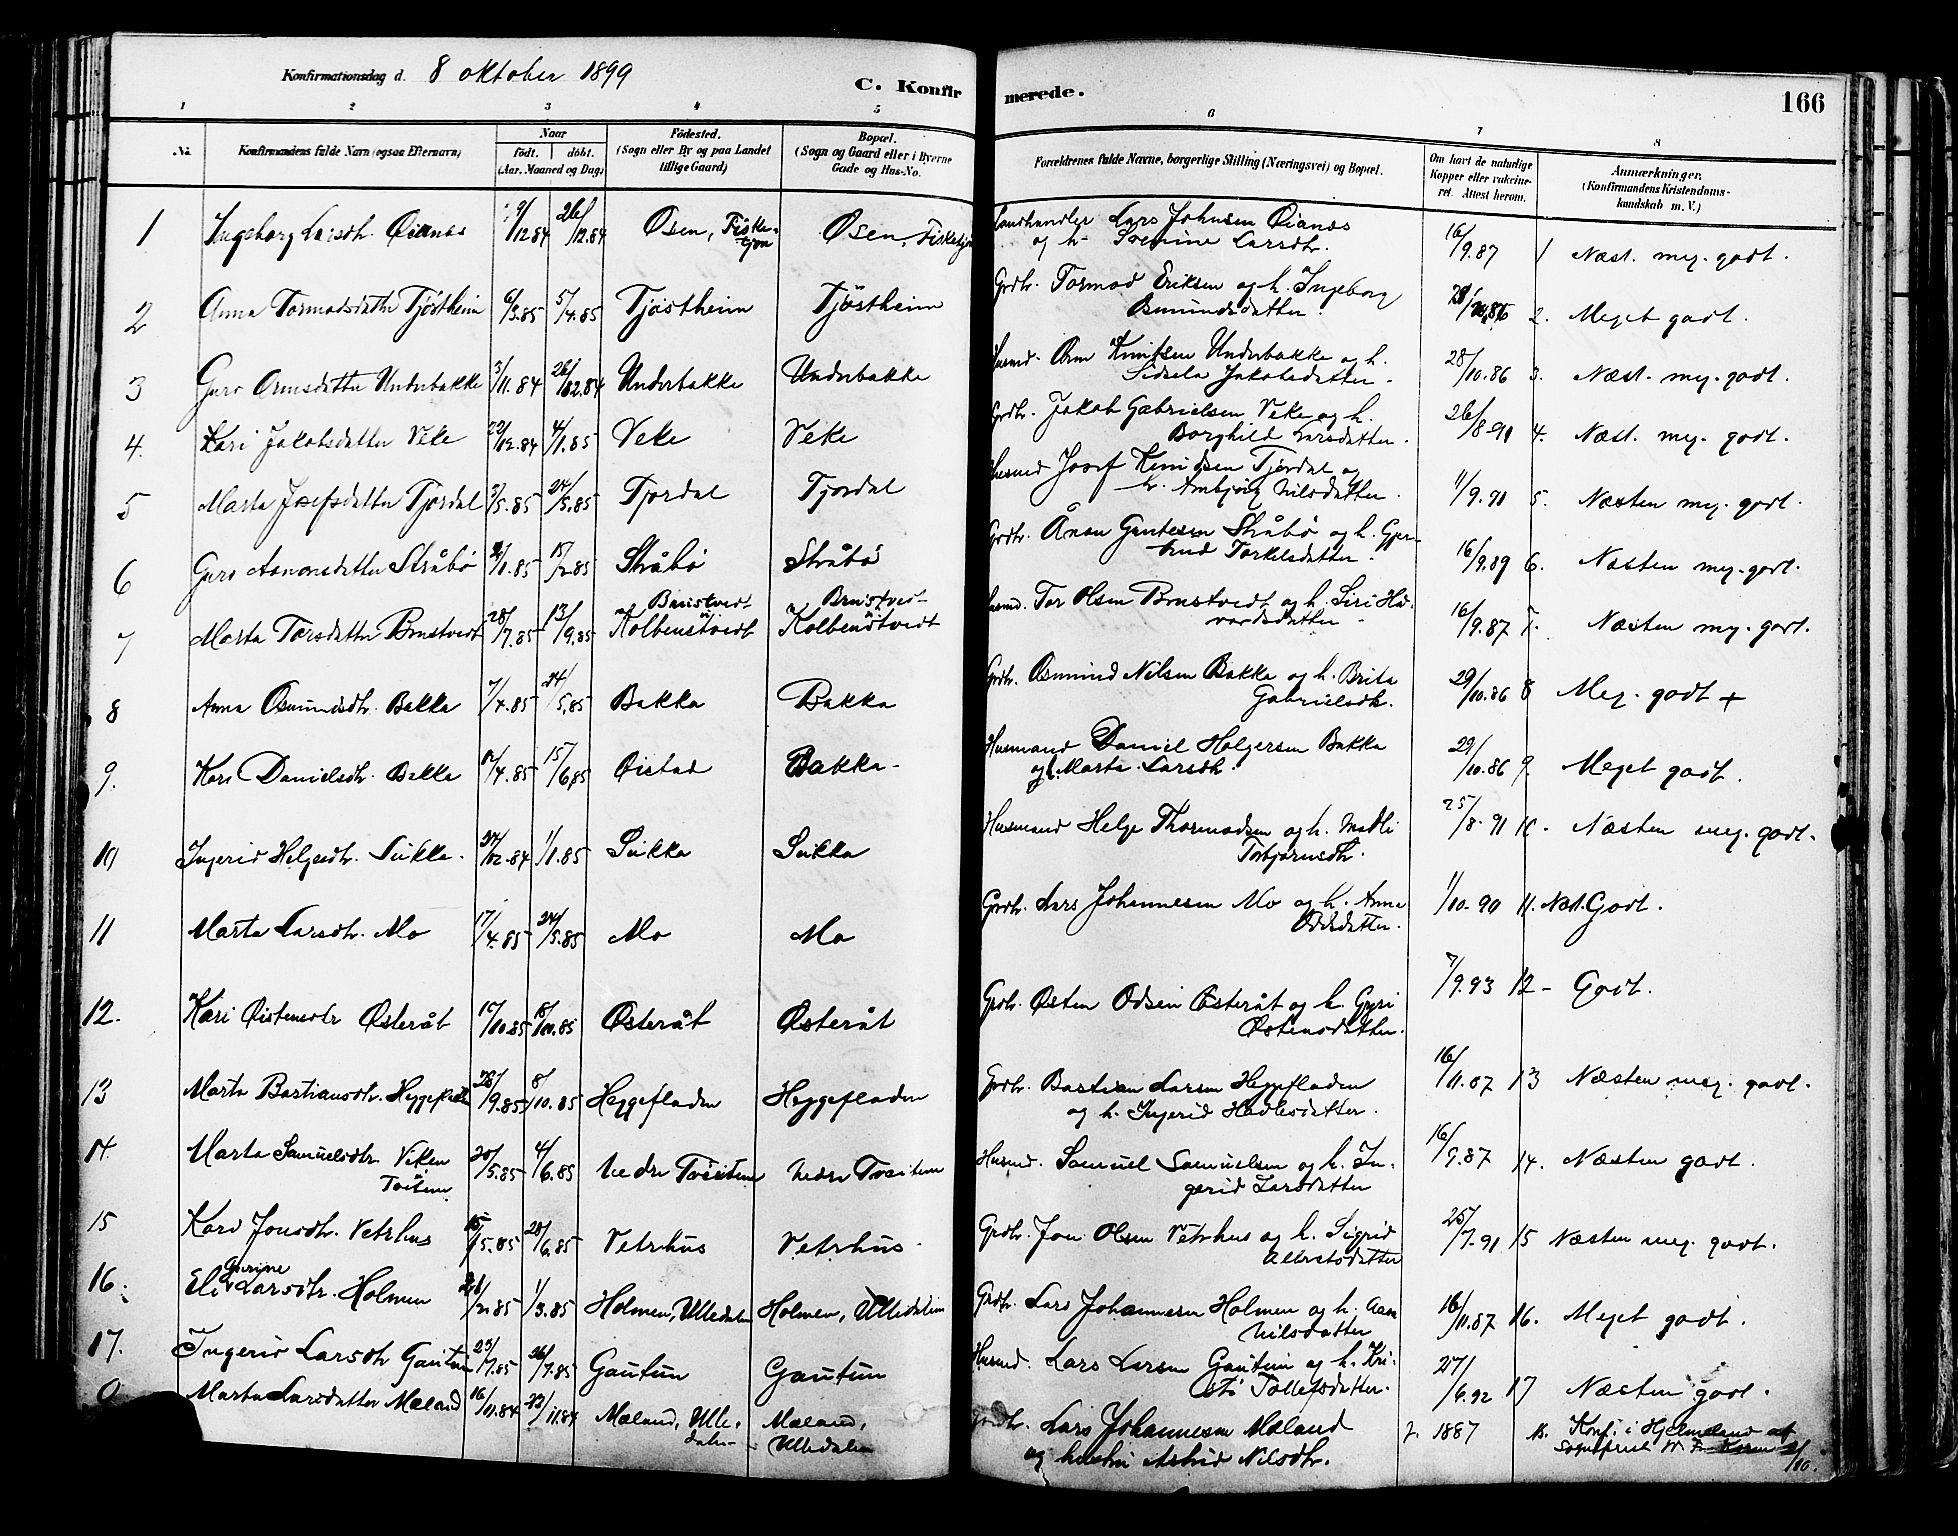 Konfirmationsdag d. 8 oktober 1899
C. Konfirmerede.
166
1 2 3 4 5 6 7 8
No. Konfirmandens fulde Navn (ogsaa Efternavn) Naar født. døbt. (Aar, Maaned og Dag) Fødested. (Sogn eller By og paa Landet tillige Gaard) Bopæl. (Sogn og Gaard eller i Byerne Gade og Hus-No. Forældrenes fulde Navne, borgerlige Stilling (Næringsvei) og Bopæl. Om havt de naturlige Kopper eller vakcineret. Attest herom. Anmærkninger. (Konfirmandens Kristendomskundskab m. V.)
1 Ingeborg Larsdtr. Øianæs 9/12 84 26/12.84 Øsen, Fiske- Øsen, Landhandler Lars Johnsen Øianæs 16/9.87 1 Næst. meg. godt.
og h. Larsdtr.
2 Anna Tormodsdatter Tjøstheim 6/3.85 5/4.85 Tjøstheim Tjøstheim Grdbr. Tormod Eriksen og h. Ingeborg 2. Meget godt.
Osmundsdatter.
3 Guro Ormsdatter Underbakke 3/11.84 26/12.84 Underbakke Underbakke Husmd. Orm Knutsen Underbakke og h. 28/10.86 3. Næst. meg. godt.
Sidsela Jakobsdatter.
4. Kari Jakobsdatter Veke 22/12.84 4/1.85 Veke Veke Grdbr. Jakob Gabrielsen Veke og h. 26/8-91 4. Næst. meg. godt.
Borghild Larsdatter.
5 Marta Josefsdatter Tjordal 3/5.85 24/5.85 Tjordal Tjordal Husmd Josef Knudsen Tjordal og 1/9.91 5. Næsten meg. godt.
h. Ambjørg Nilsdatter.
6 Guro Aanonsdatter Stråbø /1.85 15/2.85 Stråbø Stråbø Grdbr. Ånon Gautesen Stråbø og h. Gjer- 16/9.89 6. Næsten meg. godt.
trud Torkelsdatter.
7 Marta Torsdatter Brustvedt 28/7.85 13/9.85 Brustvedt i Kolbenstvedt Brustved- i Kolbenstvedt Husmd. Tor Olsen Brustvedt og h. Siri Hå- 16/9.87 7. Næsten meg. godt.
vardsdatter
8 Anna Osmundsdtr. Bakka 7/4.85 24/5.85 Bakka Bakka Grdbr. Osmund Nilsen Bakka og h. Brita 29/10.86 8 Meg. godt +
Gabrielsdtr.
9. Kari Danielsdtr. Bakka 8/4.85 15/6.85 Øistad Bakka Husmand Daniel Holgersen Bakka 29/10.86 9 Meget godt.
og h. Marta Larsdtr.
10 Ingerid Helgesdtr. Sukka. 24/12.84 1/1.85 Sukka Sukka Husmand Helge Thormodsen og h. Madli 25/8-91 10. Næsten meg. godt.
Torbjørnsdtr.
11 Marta Larsdtr. Mo 17/4.85 24/5.85 Mo Mo Grdbr. Lars Johannesen Mo og h. Anna 1/10-90 11. Næst. Godt.
Oddsdatter.
12. Kari Østensdtr Østeråt /10.85 18/10.85 Østeråt Østeråt Grdbr. Østen Odsen Østeråt og h. Gyri 7/9.93 12 - Godt.
Østensdatter.
13 Marta Bastiansdtr. Heggefladen 28/9.85 8/10.85 Heggefladen Heggefladen Grdbr. Bastian Larsen Heggefladen 16/11.87 13 Næsten meg. godt.
og h. Ingerid Hadlesdatter.
14. Marta Samuelsdtr. Viken 20/5.85 4/6.85 nedre nedre Husmd. Samuel Samuelsen og h. In- 16/9.87 14. Næsten godt.
gerid Larsdatter
15 Kari Jonsdtr. Vetrhus 15/5.85 28/6.85 Vetrhus Vetrhus Grdbr. Jon Olsen Vetrhus og h. Sigrid 25/7-91 15 Næsten meg. godt.
16. Eli Gurine Larsdtr. Holmen 2/2.85 1/3.85 Holmen, Ulledalen Holmen, Ulledalen Grdbr. Lars Johannesen Holmen og h. Aasa 16/11.87 16. Meget godt.
Nilsdatter
17. Ingerid Larsdtr Gautun 23/7.85 26/7.85 Gautun Gautun Husmd. Lars Larsen Gautun og h. Kri- 27/6.92 17 Næsten godt.
sti Tollefsdatter.
Marta Larsdatter Mæland 16/11.84 23/11.84 Mæland, Ulle- dalen Mæland, Ulledalen Grdbr. Lars Johannesen Mæland 1887 18. Konf. i Hjelmeland af
og hustru Astrid Nilsdtr. Sogneprest